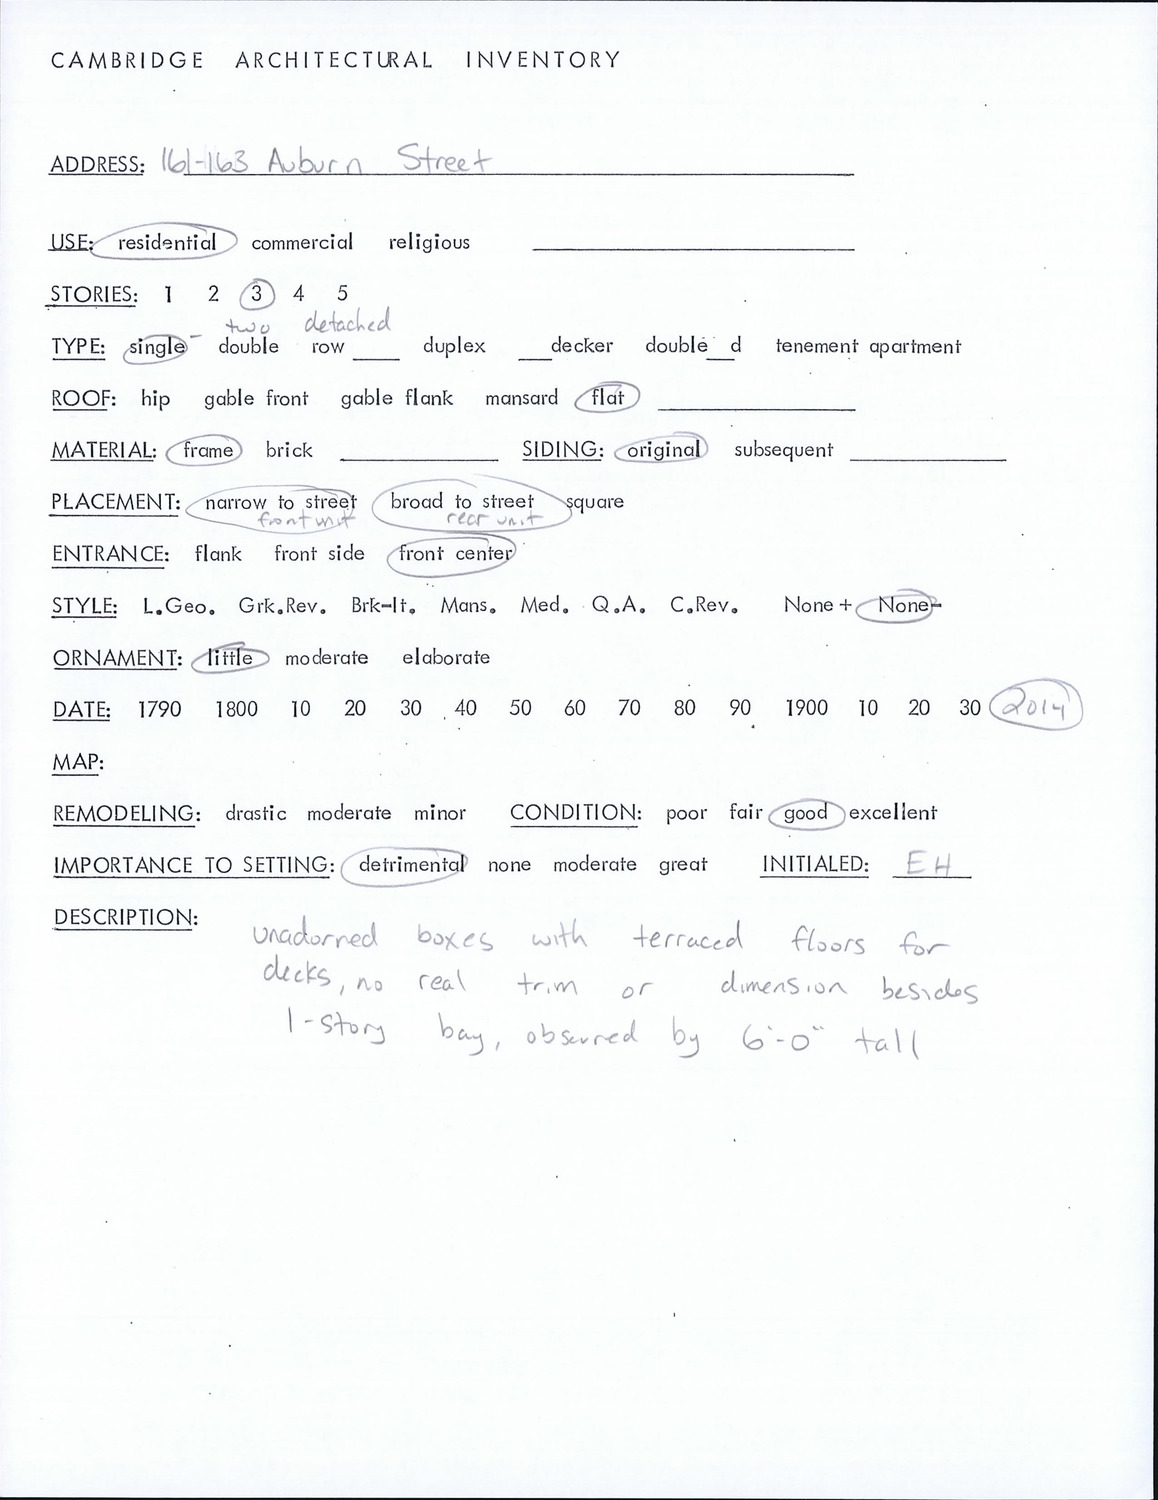 CAMBRIDGE ARCHITECTURAL INVENTORY
ADDRESS: 161-163 Auburn Street
USE: residential commercial religious
STORIES: 1 2 3 4 5
two detached
TYPE: single - double row ____ duplex ___decker double__d tenement apartment
ROOF: hip gable front gable flank mansard flat
MATERIAL: frame brick ____ SIDING: original subsequent ____
PLACEMENT: narrow to street broad to street square
front unit rear unit
ENTRANCE: flank front side front center
STYLE: L.Geo. Grk.Rev. Brk-It. Mans. Med. Q.A. C.Rev. None+ None-
ORNAMENT: little moderate elaborate
DATE: 1790 1800 10 20 30 40 50 60 70 80 90 1900 10 20 30 2014
MAP:
REMODELING: drastic moderate minor CONDITION: poor fair good excellent
IMPORTANCE TO SETTING: detrimental none moderate great INITIALED: EH
DESCRIPTION:
Unadorned boxes with terraced floors for
decks, no real trim or dimension besides
1-story bay, obscured by 6'-0" tall